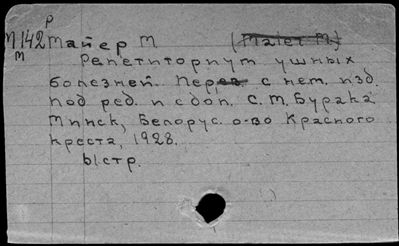 Р
М 142 Майер М (Maier M.)
М
Репетиториум ушных
болезней. Перев. с нем. изд.
под ред. и с доп. С. М. Бурака
Минск, Белорус. о-во Красного
креста, 1928.
стр.